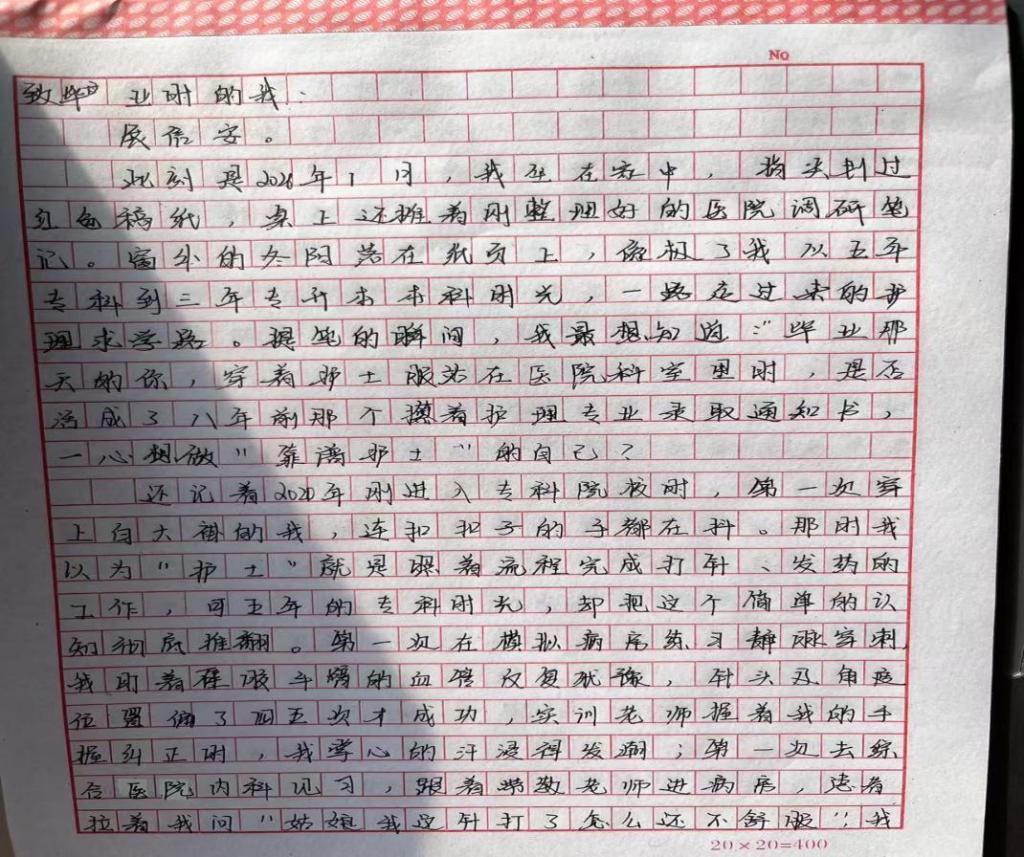 No
致毕业时的我：
展信安。
此刻是2026年1月，我坐在家中，指尖划过
红色稿纸，桌上还摊着刚整理好的医院调研笔
记。窗外的冬阳落在纸页上，像极了我从五年
专科到三年专升本本科时光，一路走过来的护
理求学路。提笔的瞬间，我最想知道："毕业那
天的你，穿着护士服站在医院科室里时，是否
活成了八年前那个攥着护理专业录取通知书，
一心想做"靠谱护士"的自己？
还记着2020年刚进入专科院校时，第一次穿
上白大褂的我，连扣扣子的手都在抖。那时我
以为"护士"就是跟着流程完成打针、发药的
工作，可五年的专科时光，却把这个简单的认
知彻底推翻。第一次在模拟病房练习静脉穿刺
我盯着硅胶手臂的血管反复犹豫，针头及角度
位置偏了四五次才成功，实训老师握着我的手
握纠正时，我掌心的汗浸得发潮；第一次去综
合医院内科见习，跟着带教老师进病房，患者
拉着我问"姑娘我这针打了怎么还不舒服"，我
20×20=400